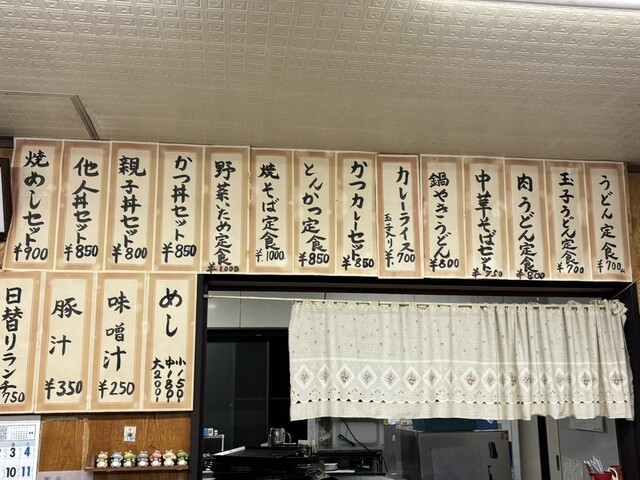 うどん定食 ¥700
玉子うどん定食 ¥700
肉うどん定食 ¥800
中華そばセット ¥750
鍋やきうどん ¥800
カレーライス 玉子入り ¥700
かつカレーセット ¥850
とんかつ定食 ¥850
焼そば定食 ¥1000
野菜いため定食 ¥1000
かつ丼セット ¥850
親子丼セット ¥800
他人丼セット ¥850
焼めしセット ¥900
めし 小150 中180 大200
味噌汁 ¥250
豚汁 ¥350
日替りランチ 750
3 4
10 11